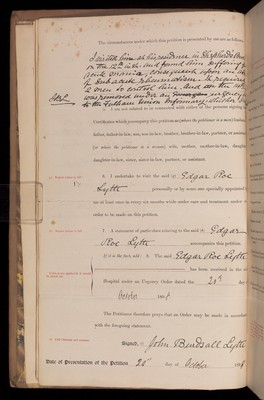 The circumstances under which this petition is presented by me are as follows:—
I visited him at his residence in Shepherds Bush
on the 12th inst. and found him suffering from
acute mania, consequent upon an attack
of Subacute rheumatism. He required
2 men to control him. And on the 14th
was removed under an urgency order
to the Fulham Union Infirmary
I am not related to or connected with either of the
Certificates which accompany this petition as (where the petitioner is a man) husband,
father, father-in-law, son, son-in-law, brother, brother-in-law, partner, or assistant
(or where the petitioner is a woman) wife, mother, mother-in-law, daughter,
daughter-in-law, sister, sister-in-law, partner, or assistant.
6. I undertake to visit the said Edgar Roe
Lytle personally or by some one specially appointed by
me at least once in every six months while under care and treatment under the
order to be made on this petition.
7. A statement of particulars relating to the said Edgar
Roe Lytle accompanies this petition.
If it is the fact, add: 8. The said Edgar Roe Lytle
has been received in the
Hospital under an Urgency Order dated the 20th day
October
The Petitioner therefore prays that an Order may be made in accordance
with the foregoing statement.
Signed, John Birdsall Lytle
Date of Presentation of the Petition 20th day of October